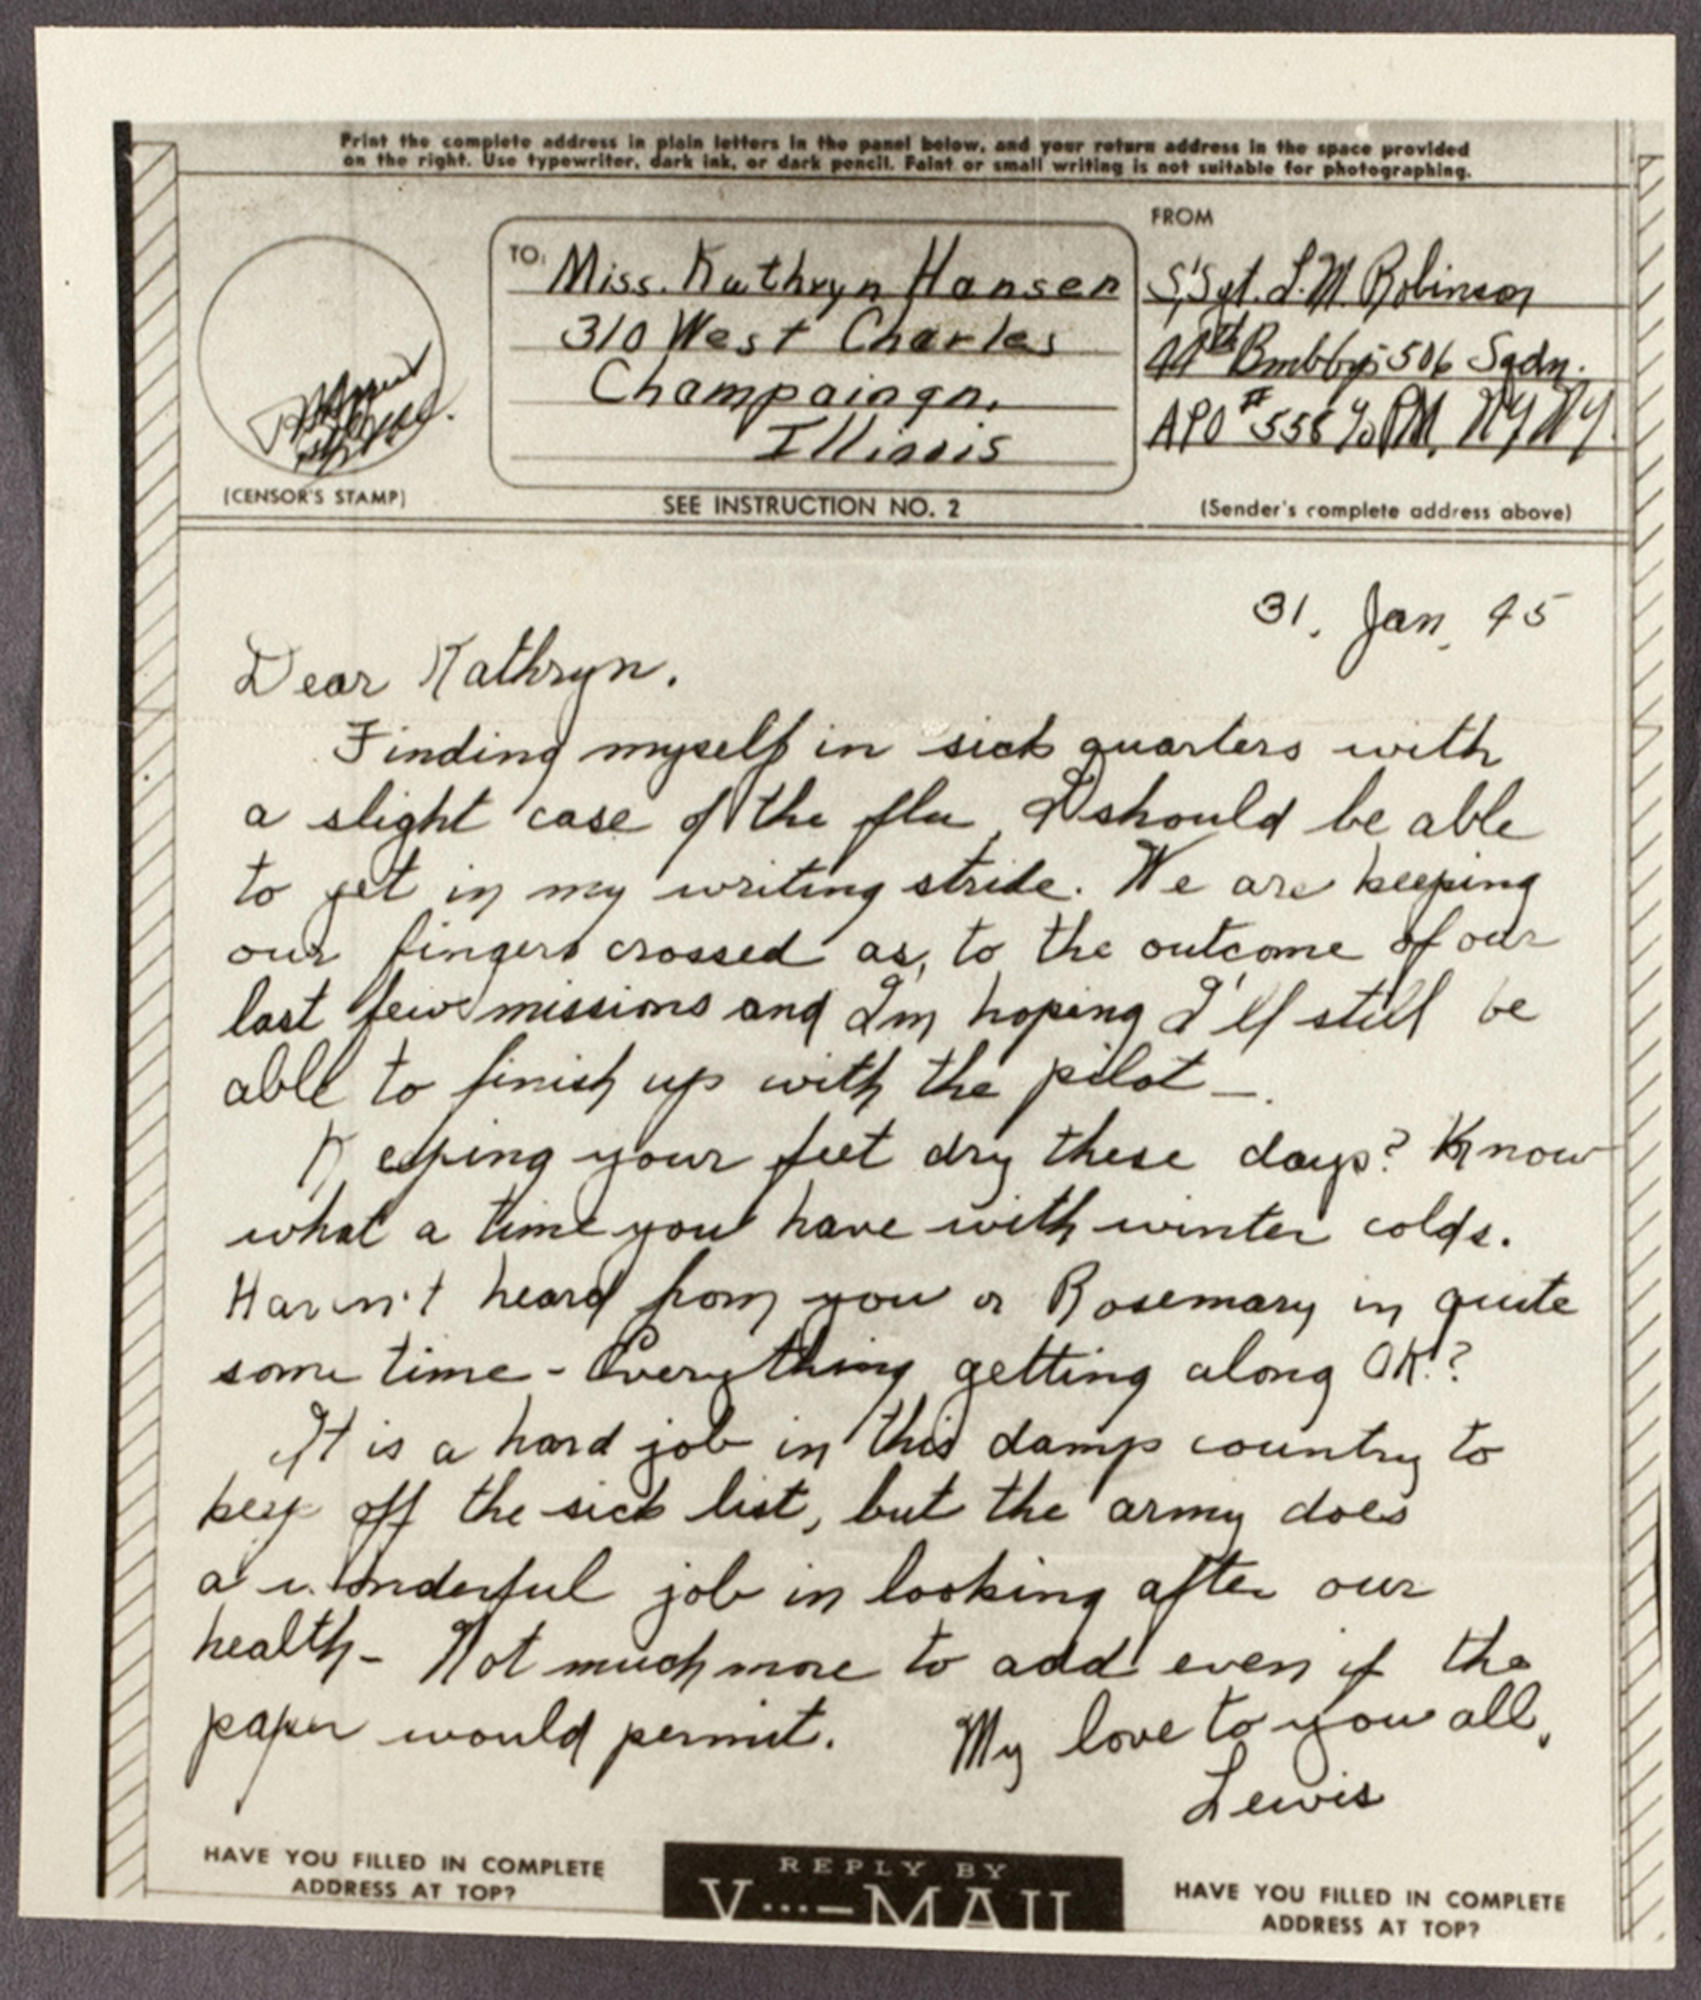 Print the complete address in plain letters in the panel below, and your return address in the space provided
on the right. Use typewriter, dark ink, or dark pencil. Faint or small writing is not suitable for photographing.
FROM
TO:
Miss. Kathryn Hansen
310 West Charles
Champaingn,
Illinois
S/Sgt. L.M. Robinson
44th Bmb Gp; 506 Sqdn.
APO #558 c/o PM. NY NY.
(CENSOR'S STAMP)
SEE INSTRUCTION NO. 2
(Sender's complete address above)
31, Jan, 45
Dear Kathryn.
Finding myself in sick quarters with
a slight case of the flu, I should be able
to get in my writing stride. We are keeping
our fingers crossed as, to the outcome of our
last few missions and I'm hoping I'll still be
able to finish up with the pilot —.
Keeping your feet dry these days? Know
what a time you have with winter colds.
Haven't heard from you or Rosemary in quite
some time - Everything getting along OK.?
It is a hard job in this damp country to
keep off the sick list, but the army does
a wonderful job in looking after our
health - Not much more to add even if the
paper would permit. My love to you all,
Lewis
HAVE YOU FILLED IN COMPLETE
ADDRESS AT TOP?
REPLY BY
V···—MAIL
HAVE YOU FILLED IN COMPLETE
ADDRESS AT TOP?